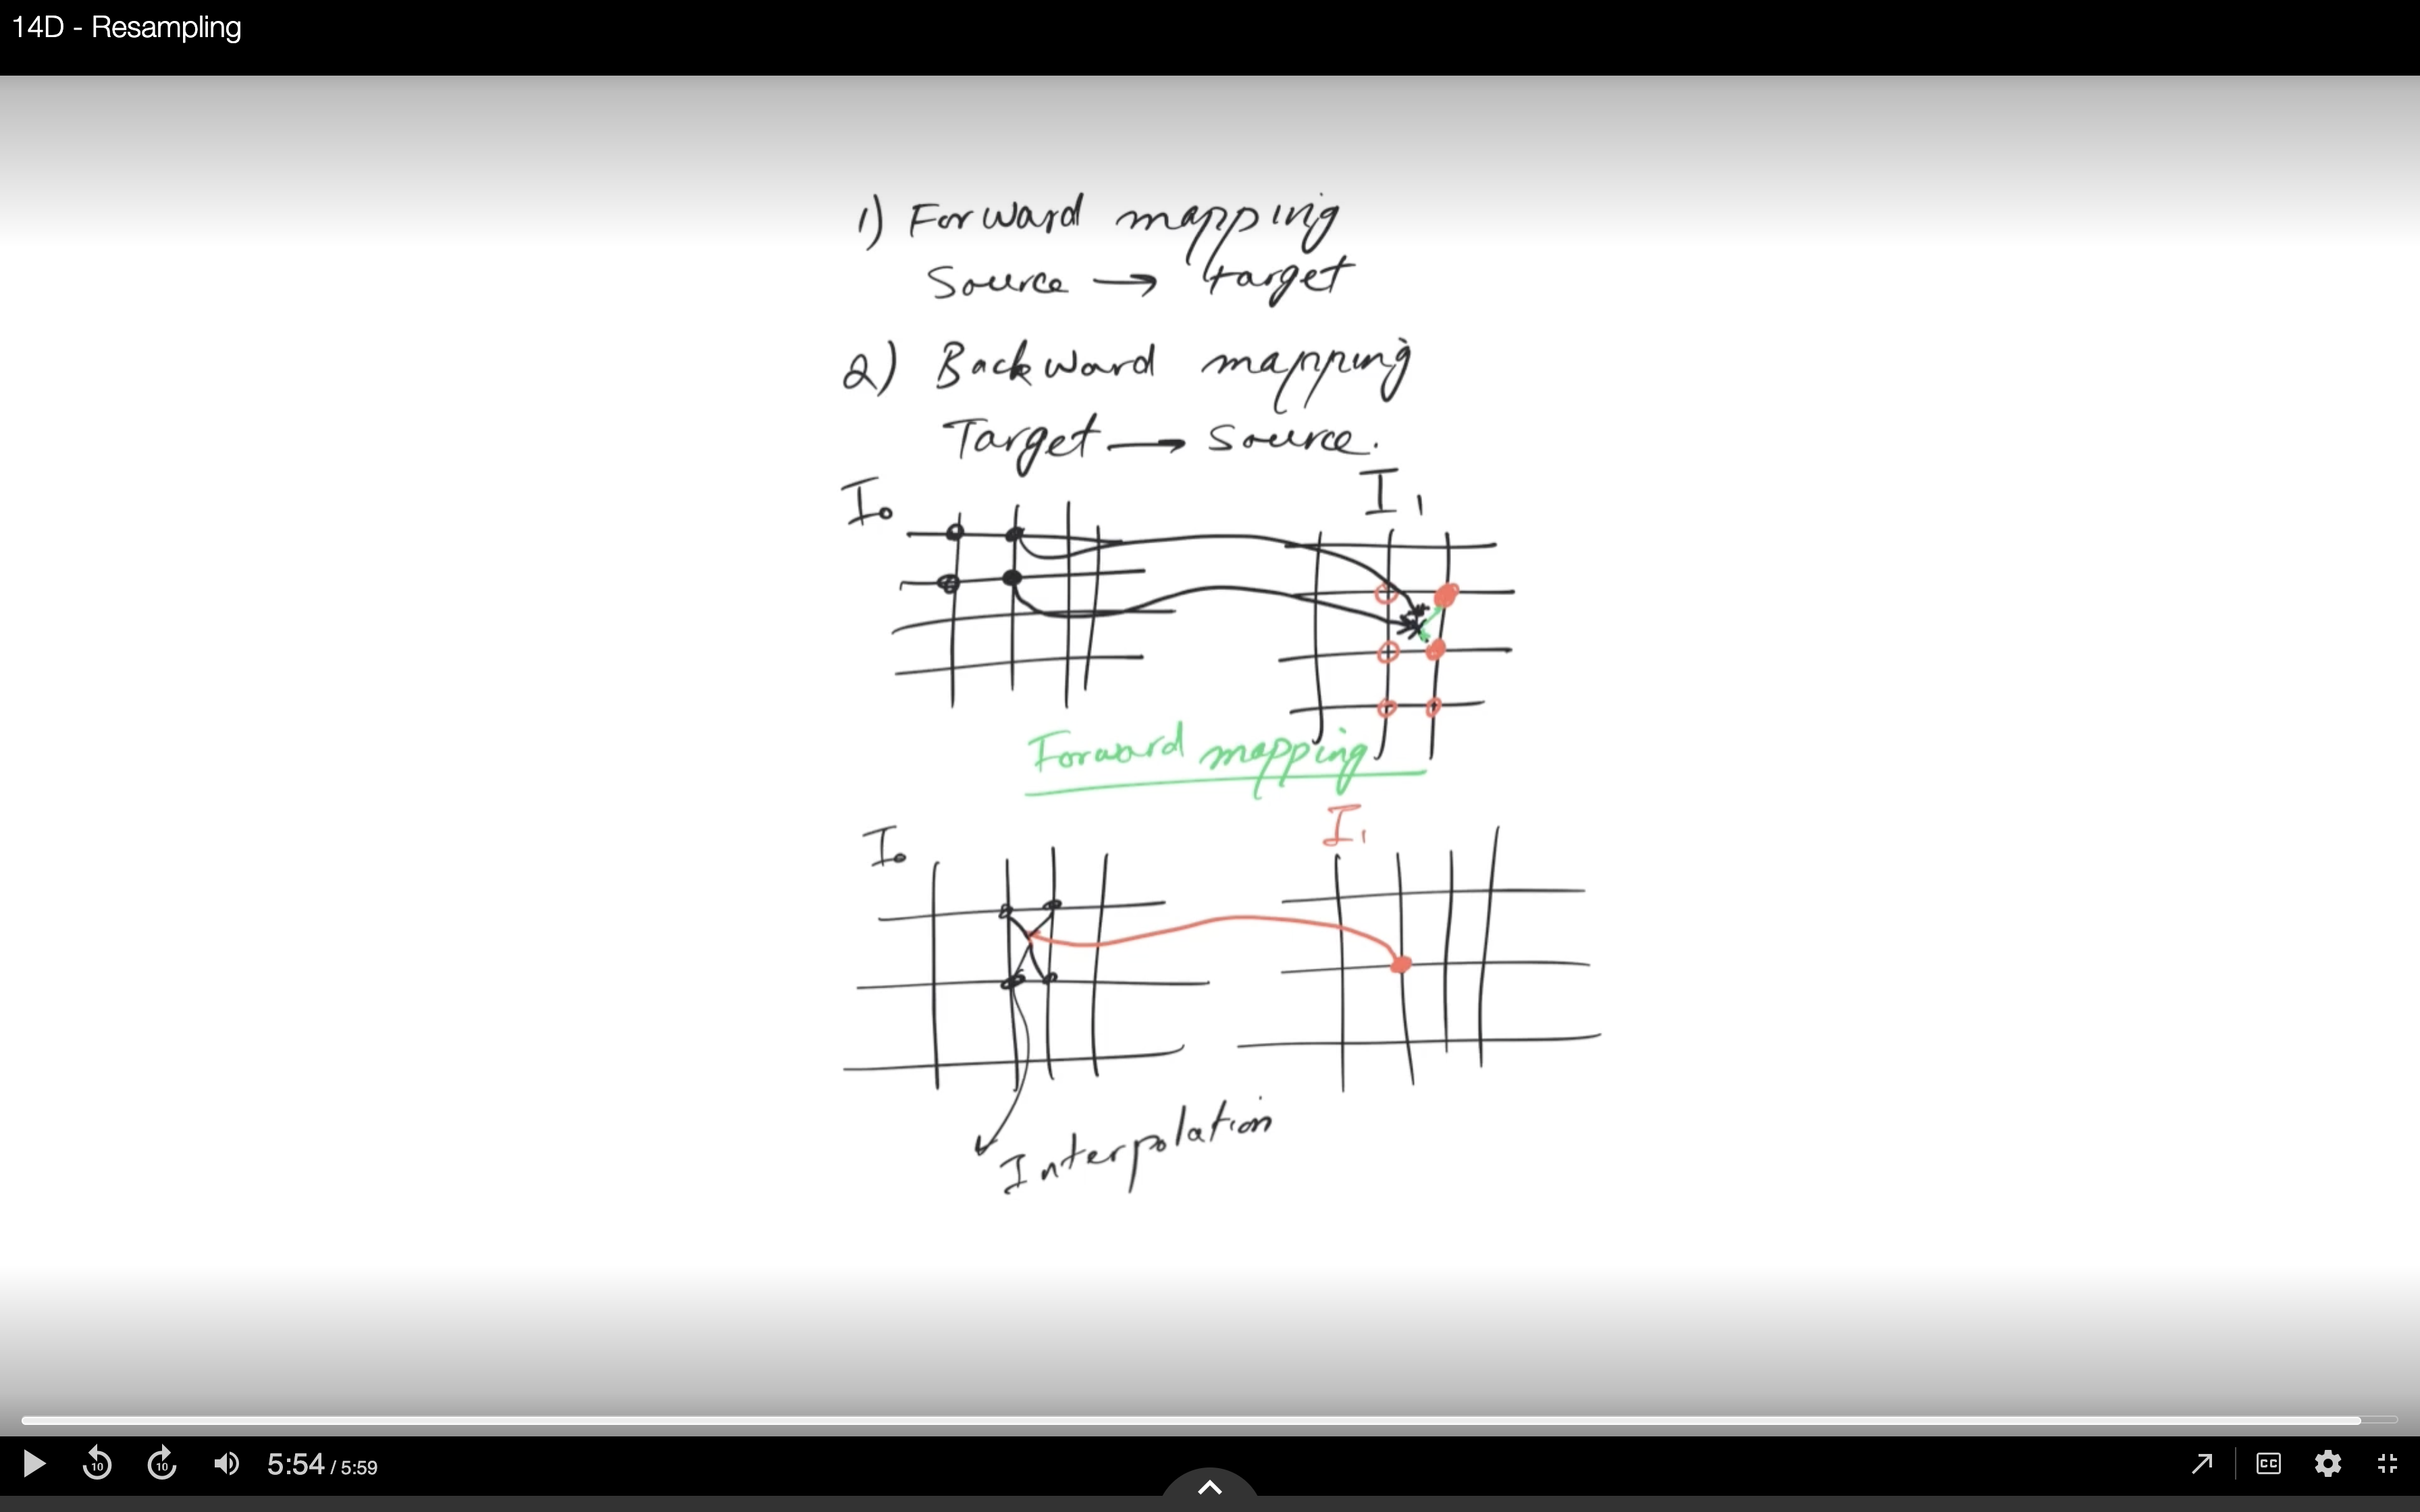 14D - Resampling
1) Forward mapping
Source → target
2) Backward mapping
Target → Source.
I₀ I₁
Forward mapping
I₀ I₁
Interpolation
10 10 5:54 / 5:59 CC